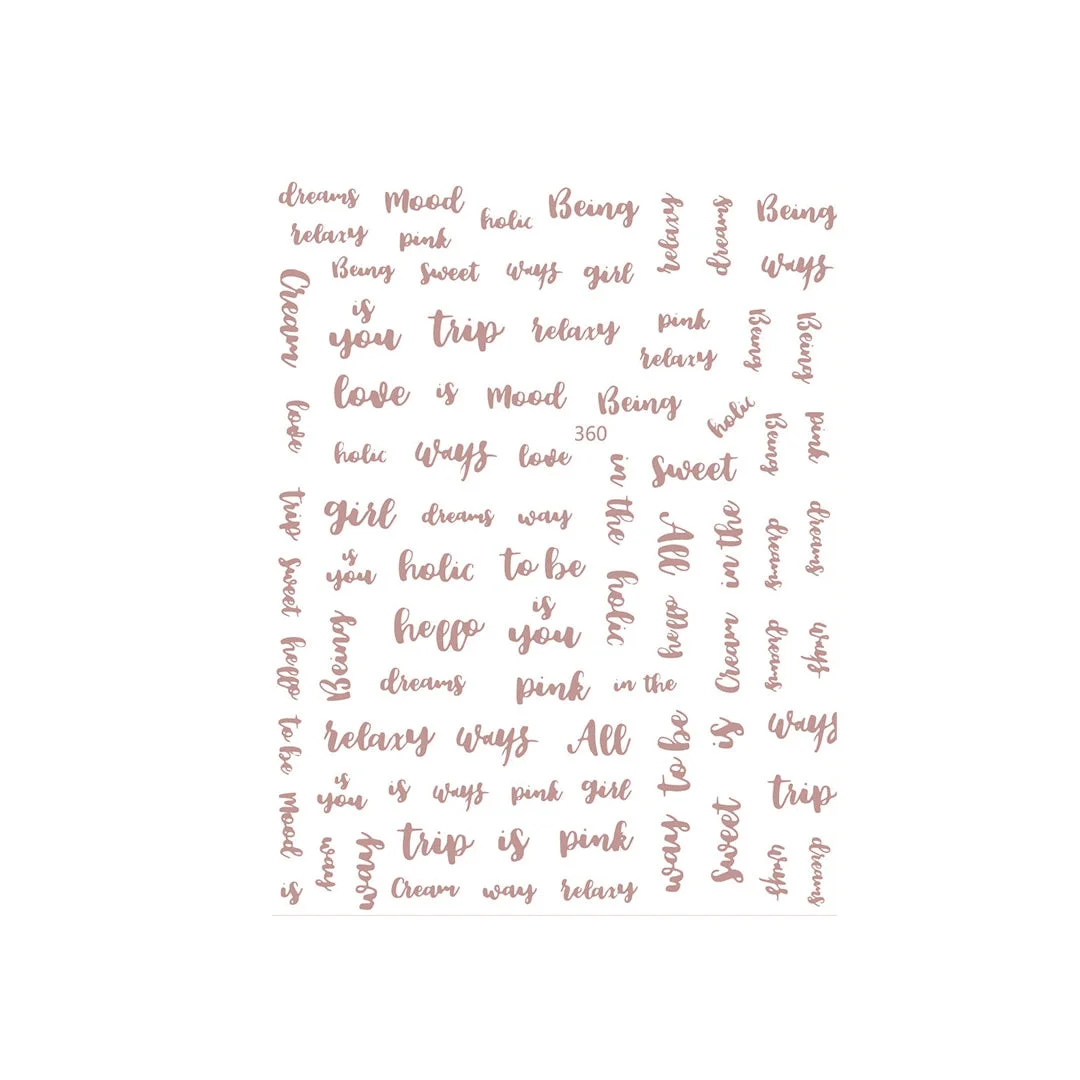 dreams Mood holic Being relaxy dreams Being
relaxy pink
Being sweet ways girl ways
Cream
is
you trip relaxy pink Being Being
relaxy
love is Mood Being holic
love Being pink
360
holic ways love in the sweet
trip girl dreams way All in the dreams dreams
is
you holic to be holic
sweet hello Being hello is
you hello Cream dreams ways
dreams pink in the
relaxy ways All to be is ways
to be is
you is ways pink girl trip
Mood way way trip is pink way sweet ways dreams
is Cream way relaxy